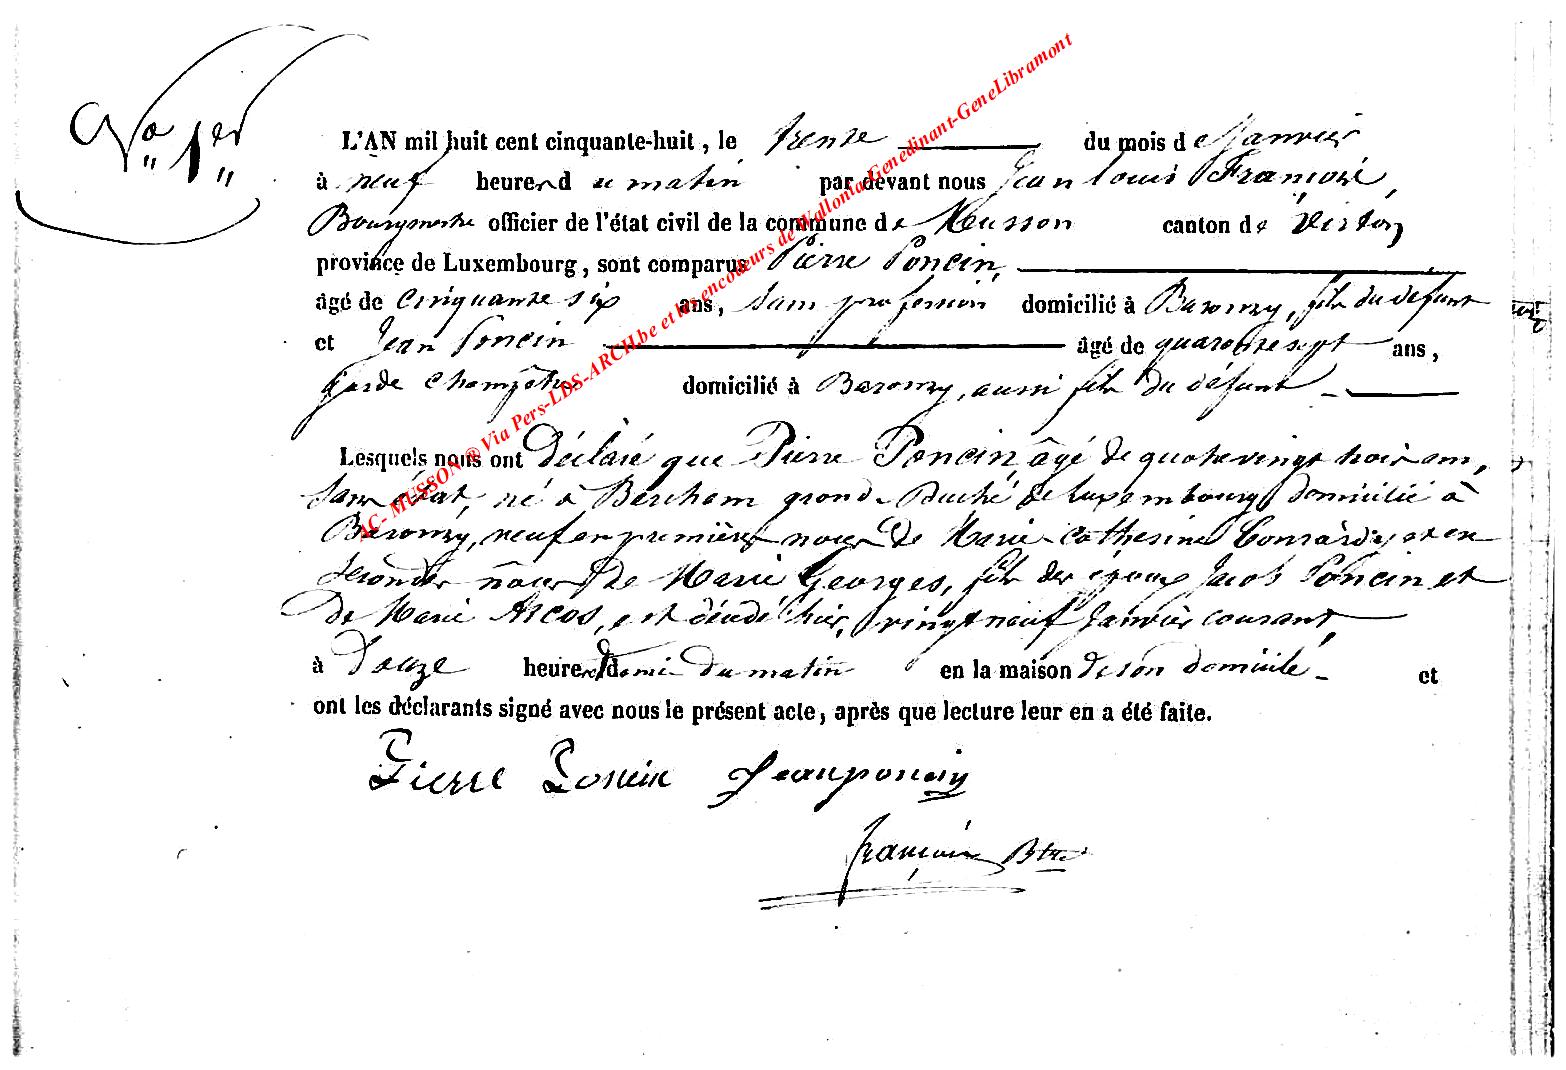 No 1er
L'AN mil huit cent cinquante-huit, le trente du mois de Janvier
à neuf heures du matin par devant nous Jean Louis François,
Bourgmestre officier de l'état civil de la commune de Musson canton de Virton
province de Luxembourg, sont comparus Pierre Poncin,
âgé de cinquante six ans, sans profession domicilié à Baranzy, fils du défunt
et Jean Poncin âgé de quarante sept ans,
garde champêtre domicilié à Baranzy, aussi fils du défunt
Lesquels nous ont déclaré que Pierre Poncin, âgé de quatre vingt trois ans,
sans état, né à Bascham grand-Duché de Luxembourg domicilié à
Baranzy, veuf en premières noces de Marie Catherine Conrardy et en
secondes noces de Marie Georges, fils des époux Jacob Poncin et
de Marie Arcos, est décédé hier, vingt neuf Janvier courant,
à douze heures demi du matin en la maison de son domicile et
ont les déclarants signé avec nous le présent acte, après que lecture leur en a été faite.
Pierre Poncin Jean poncin
François Btre
AC- MUSSON ® Via Pers-LDS-ARCH.be et les encodeurs de Wallonia Genedinant-GeneLibramont